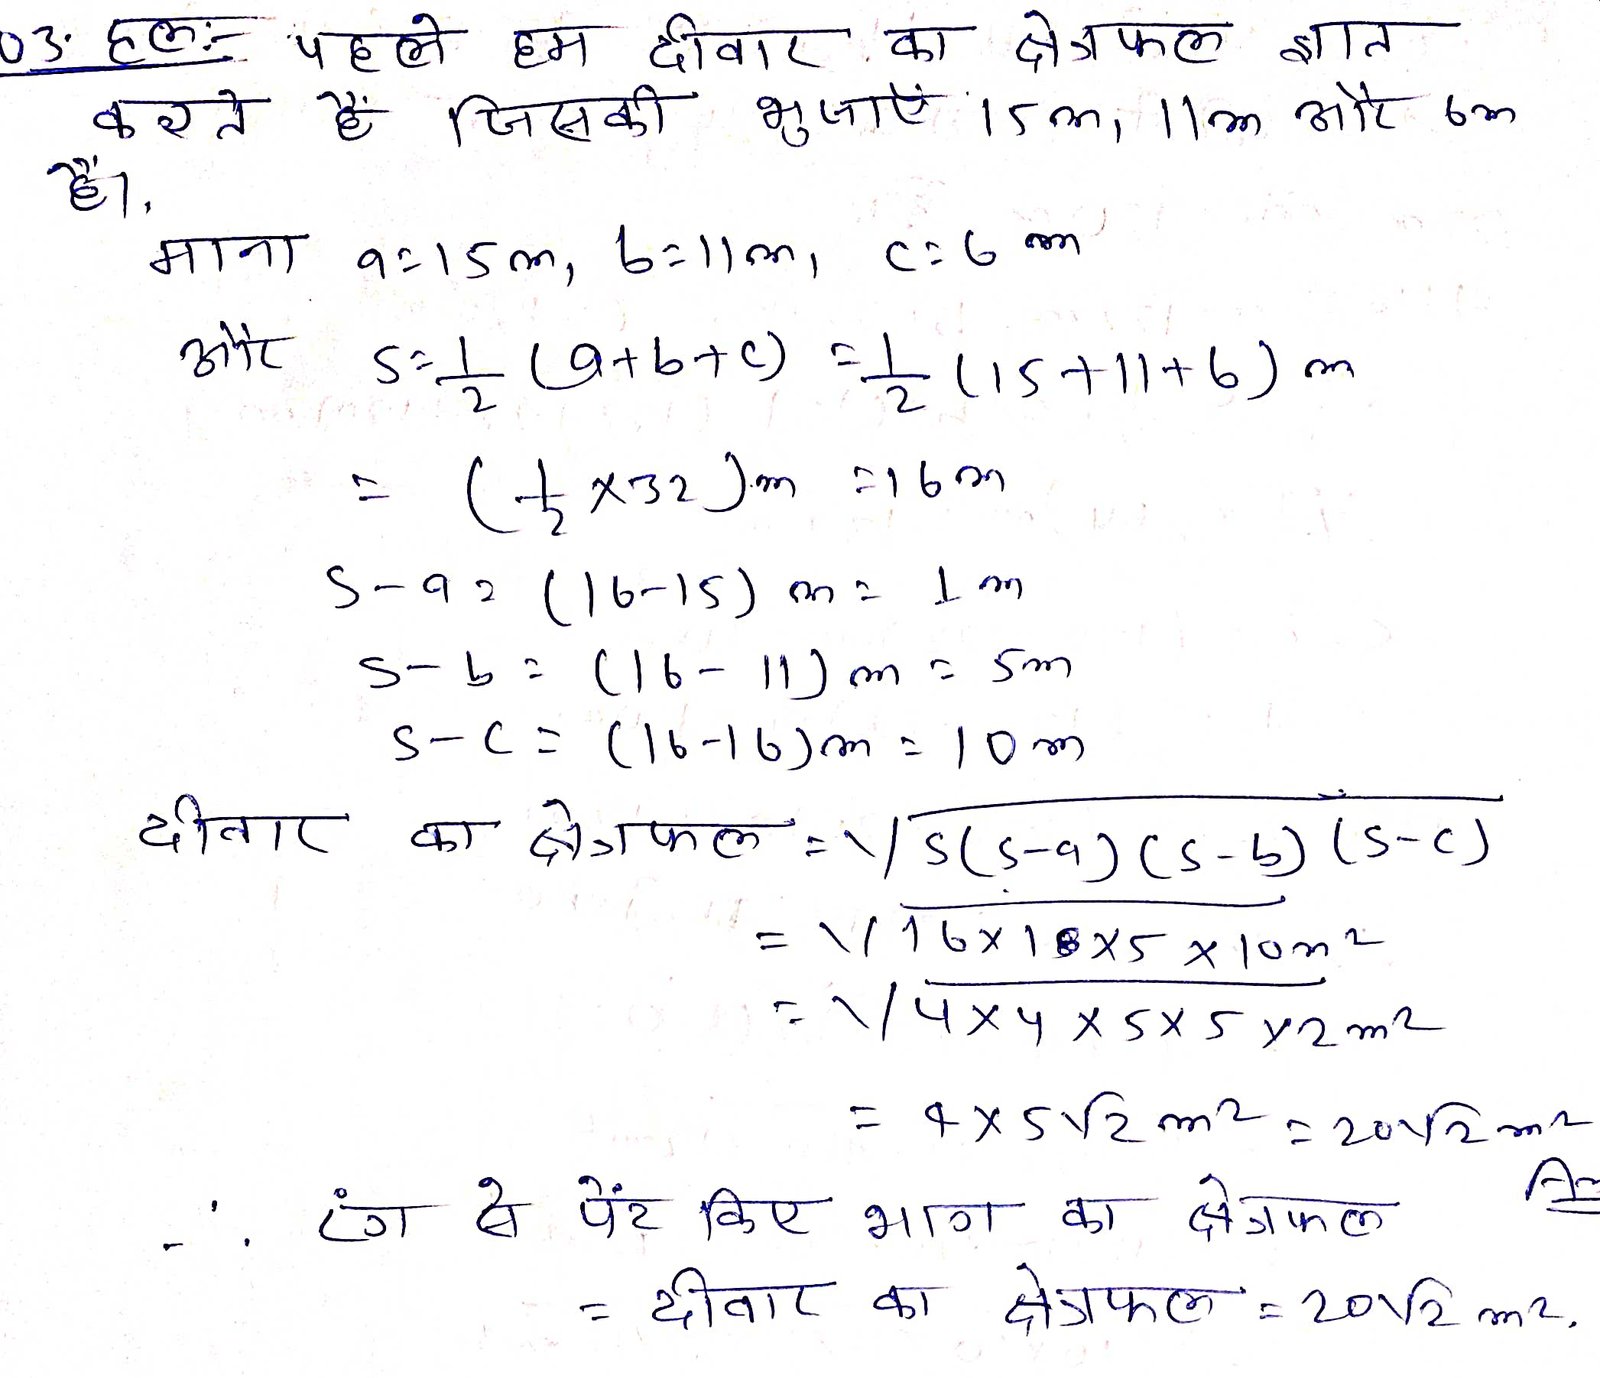 03. हलः- पहले हम दीवार का क्षेत्रफल ज्ञात
करते हैं जिसकी भुजाएं 15m, 11m और 6m
हैं।.
माना a=15m, b=11m, c=6 m
और S=1/2 (a+b+c) =1/2 (15+11+6) m
= (1/2 ×32)m =16m
S-a= (16-15) m= 1 m
S-b= (16-11) m = 5m
S-C= (16-16)m = 10 m
दीवार का क्षेत्रफल =√S(S-a)(S-b)(S-C)
= √16×1××5×10m²
= √4×4×5×5×2m²
= 4×5√2 m² = 20√2 m²
∴ रंग से पेंट किए भाग का क्षेत्रफल
= दीवार का क्षेत्रफल = 20√2 m².